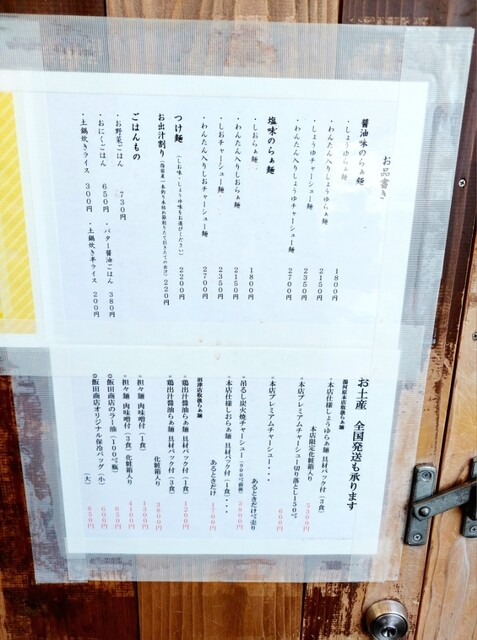 お品書き
醤油味のらぁ麺
・しょうゆらぁ麺 1800円
・わんたん入りしょうゆらぁ麺 2150円
・しょうゆチャーシュー麺 2350円
・わんたん入りしょうゆチャーシュー麺 2700円
塩味のらぁ麺
・しおらぁ麺 1800円
・わんたん入りしおらぁ麺 2150円
・しおチャーシュー麺 2350円
・わんたん入りしおチャーシュー麺 2700円
つけ麺 (しお味・しょうゆ味をお選びください) 2200円
お出汁割り 220円
ごはんもの
・お野菜ごはん 730円
・おにくごはん 650円
・土鍋炊きライス 300円
・バター醤油ごはん 380円
・土鍋炊き半ライス 200円
お土産 全国発送も承ります
湯河原本店取扱らぁ麺
本店仕様しょうゆらぁ麺 具材パック付(3食)
本店限定化粧箱入り
本店プレミアムチャーシュー切り落とし150g
本店プレミアムチャーシュー・・・
あるときだけ量り売り
吊るし炭火焼チャーシュー
本店仕様しおらぁ麺 具材パック付(1食)・・・
あるときだけ
沼津店取扱らぁ麺
鶏出汁醤油らぁ麺 具材パック付(1食)
鶏出汁醤油らぁ麺 具材パック付(3食)
化粧箱入り
担々麺 肉味噌付(1食)
担々麺 肉味噌付(3食) 化粧箱入り
飯田商店のラー油(100g瓶)
飯田商店オリジナル保冷バッグ(小)
(大)